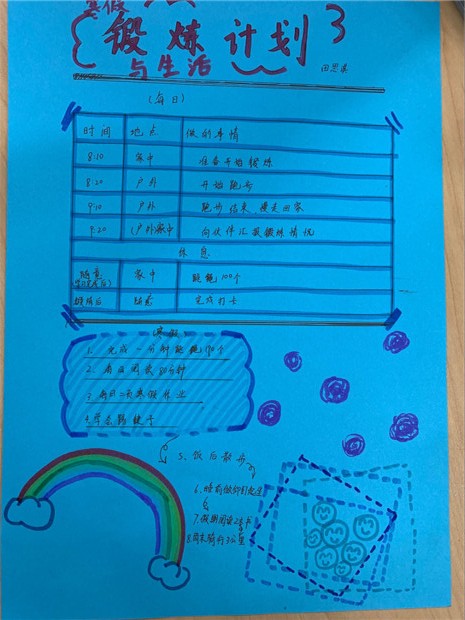 寒假
锻炼计划
与生活
(每日)
时间 地点 做的事情
8:10 家中 准备开始锻炼
8:20 户外 开始跑步
9:10 户外 跑步结束,慢走回家
9:20 (户外)家中 向伙伴汇报锻炼情况
休息
随意 家中 跳绳100个
锻炼后 随意 完成打卡
(寒假)
1、完成一分钟跳绳170个
2、每日阅读80分钟
3、每日二页寒假作业
4、学会踢毽子
5、饭后散步
6、睡前做仰卧起坐
7、假期阅读2本书
8、周末骑行3公里